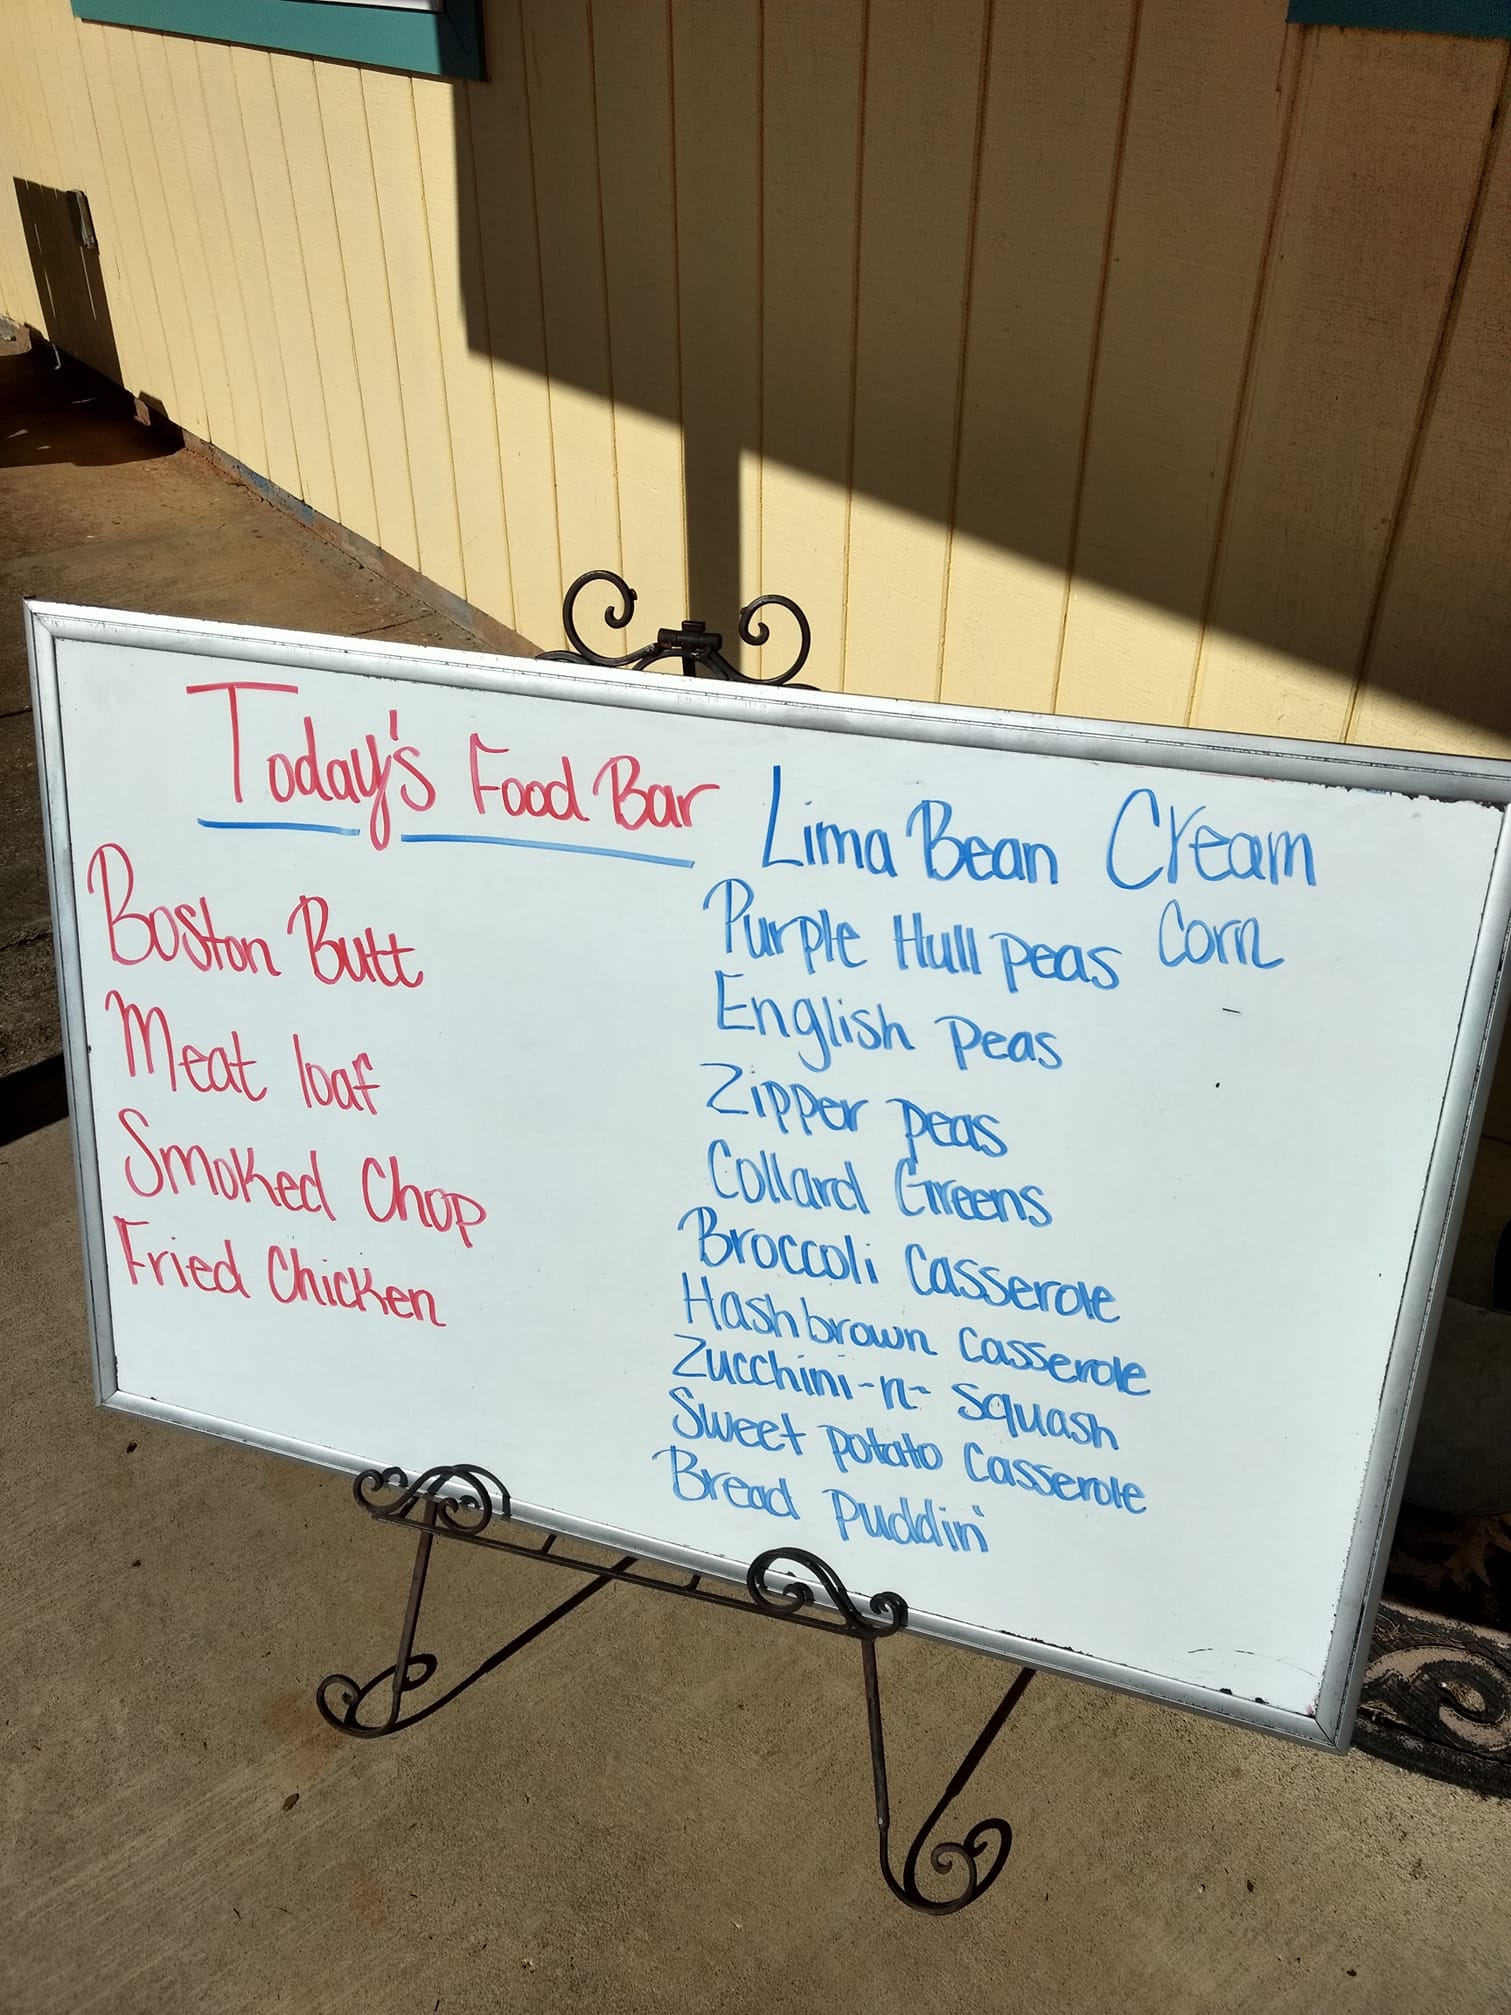 Today's Food Bar
Boston Butt
Meat loaf
Smoked Chop
Fried Chicken
Lima Bean
Purple Hull peas
English peas
Zipper peas
Collard Greens
Broccoli Casserole
Hashbrown Casserole
Zucchini-n- Squash
Sweet potato Casserole
Bread Puddin'
Cream
Corn